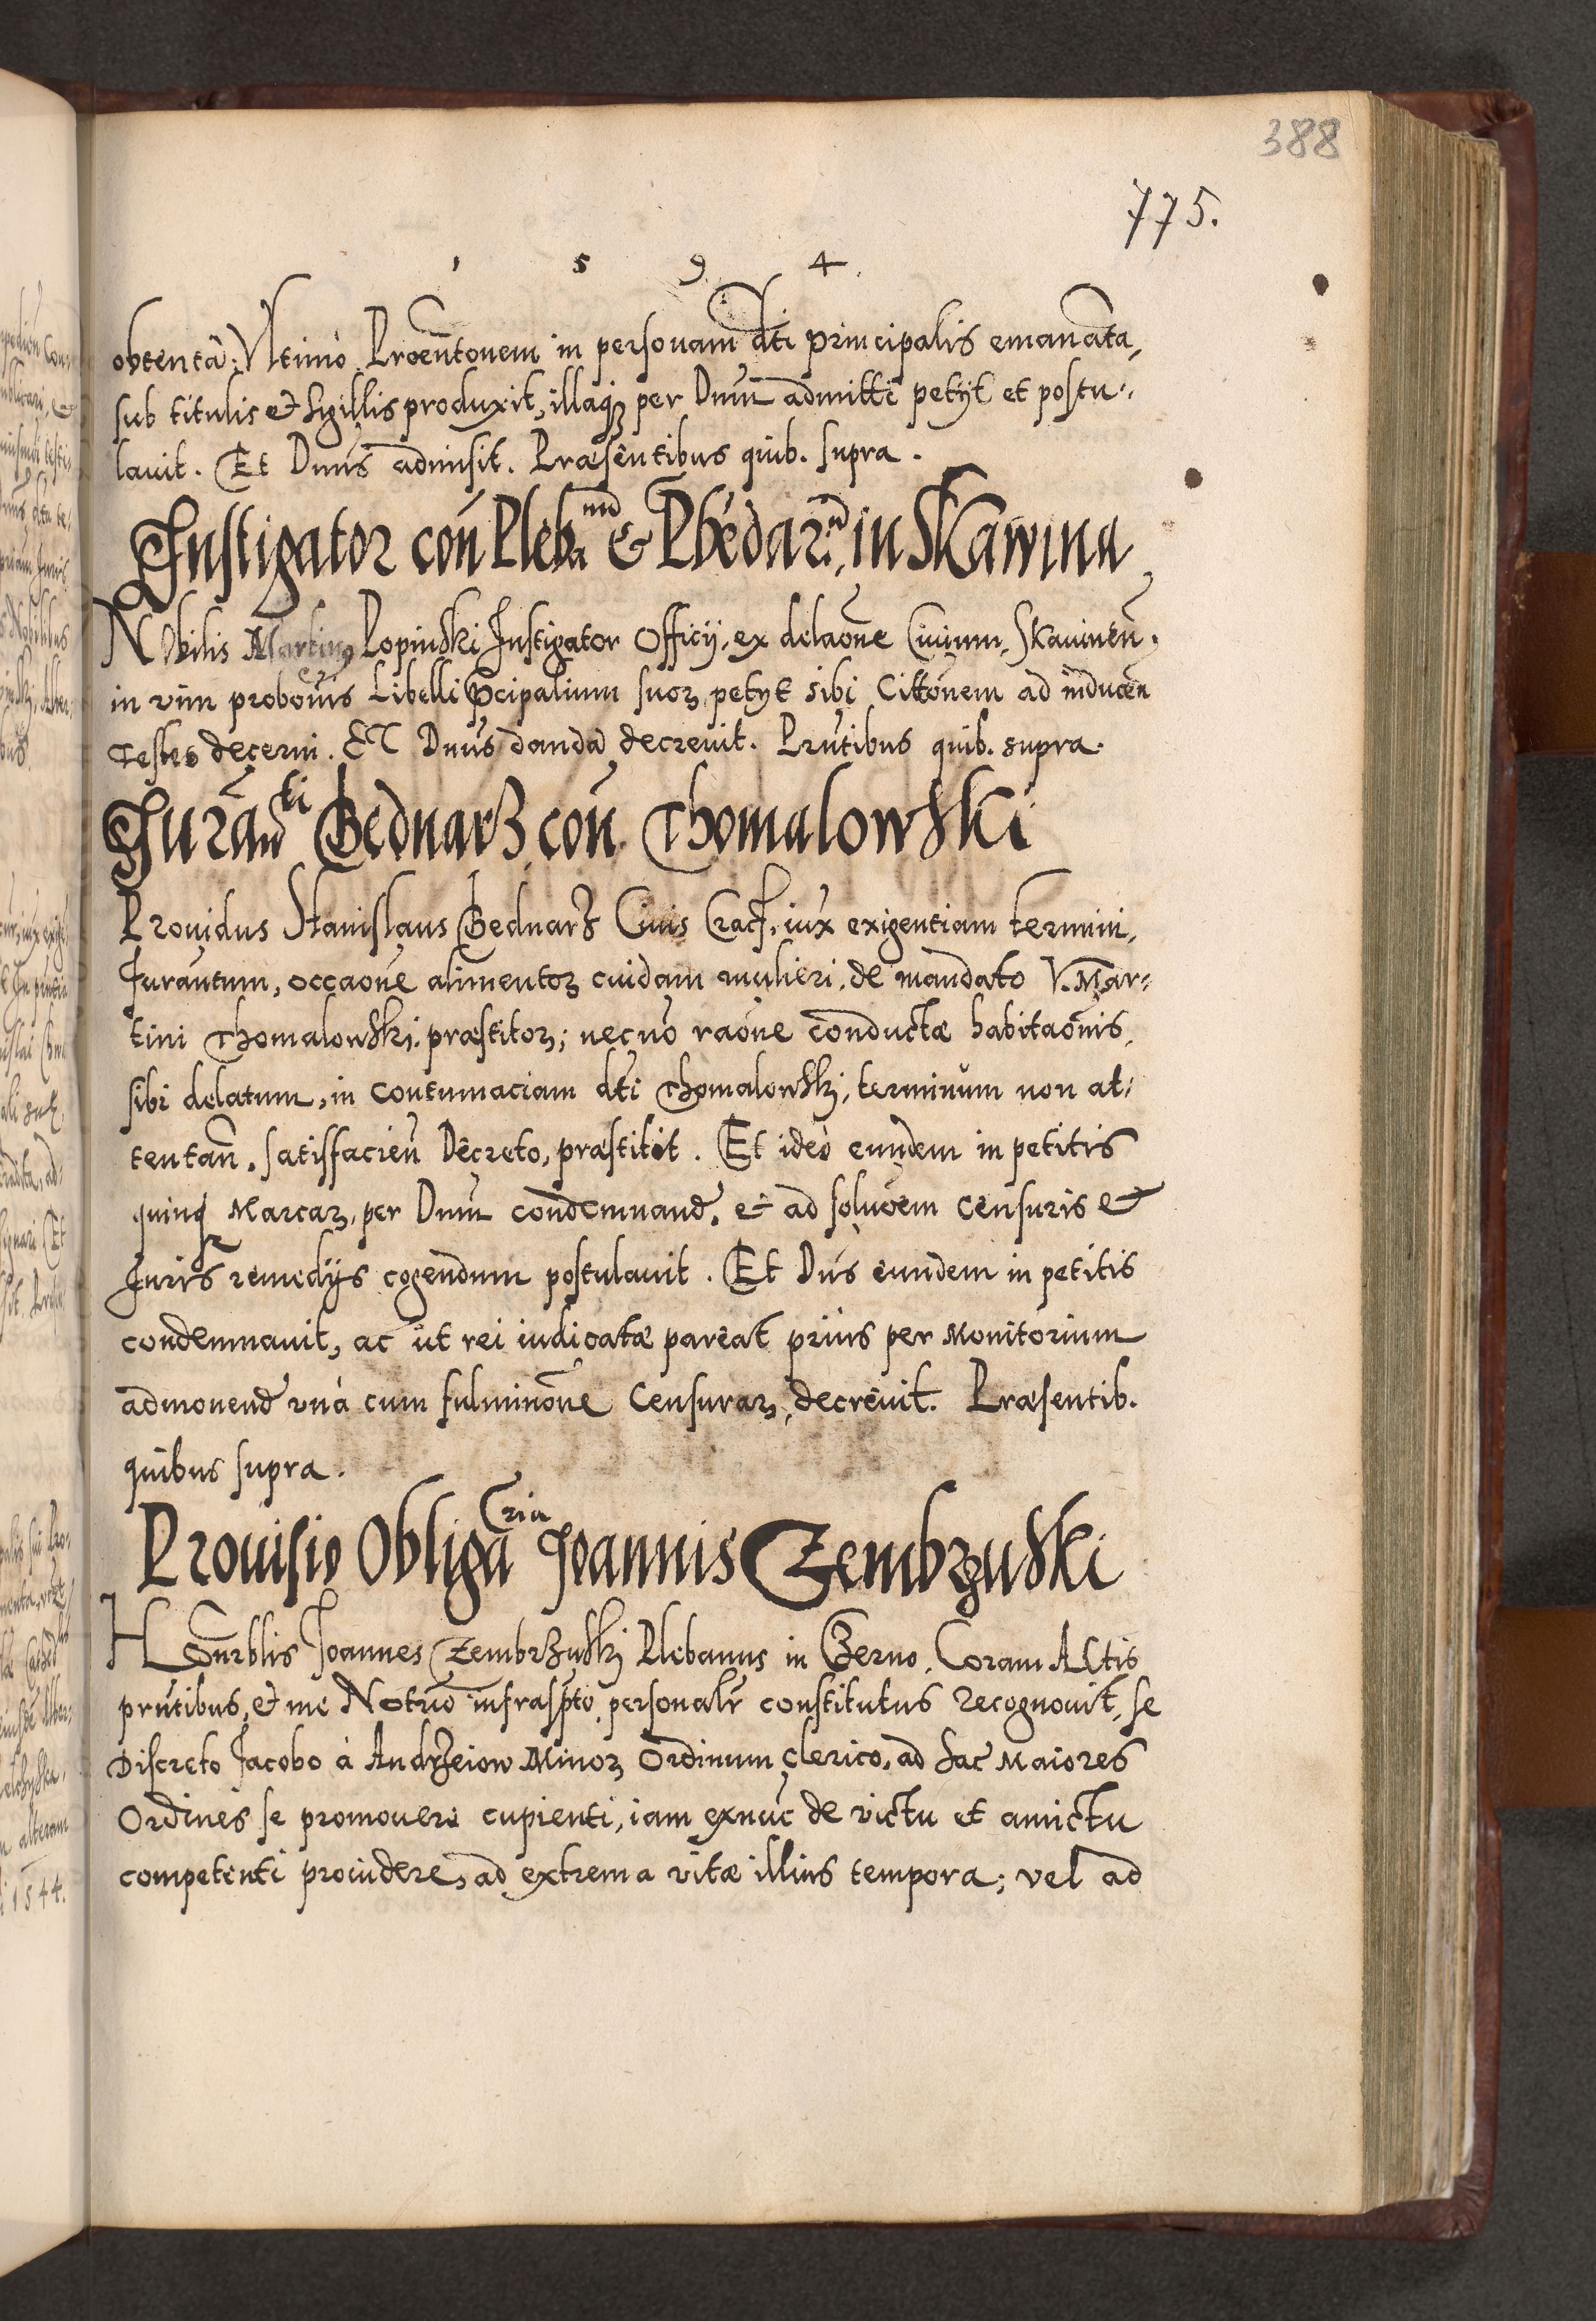 388
775.
1 5 9 4.
obtentã: Vltimò Procũtonem in personam dti principalis emanãta,
sub titulis et Sigillis produxit, illaqȝ per Dnum admitti petÿt et postu-
lauit. Et Dnũs admisit. Præsentibus quib. supra.
Instigator con Pleba num & Pbēdar. in Skawina
Nobilis Martinꝯ Popinski Instigator Officÿ, ex delaōne Ciuium Skauinen̄.
in vim probōuis Libelli Pcipalium suoꝝ, petÿt sibi Cittōnem ad inducen̄
Testes decerni. Et Dnũs dandã decreuit. Prñtibus quib. supra.
Juran ti Bednarz con. Thomalowski
Prouidus Stanislaus Bednarz Ciuis Crac. iux exigentiam termini,
Jurañtum, occaōne alimentoꝝ cuidam mulieri, de mandato V. Mar-
tini Thomalowskj præstitoꝝ; nec nõ raōne conductæ habitaōnis,
sibi delatum, in contumaciam dti Thomalowskj, terminum non at-
tentan̄. satisfacien̄ Decreto, præstitit. Et ideò eundem in petitis
quinqȝ Marcaꝝ, per Dnum condemnand. et ad soluōem censuris et
Juris remedÿs cogendum postulauit. Et Dñs eundem in petitis
condemnauit, ac ut rei iudicatæ pareat prius per Monitorium
admonend vnà cum fulminōne Censuraꝝ, decreuit. Præsentib.
quibus supra.
Prouisio Obliga ria Joannis Zembrzuski
Honrblis Joannes Zembrzuskj Plebanus in Gerno, Coram Actis
prñtibus, et me Notrio infraspto personalr constitutus recognouit, se
Discreto Jacobo à Andrzeiow Minoꝝ Ordinum Clerico, ad Sac Maiores
Ordines se promoueri cupienti, iam exnũc de victu et amictu
competenti prouidere, ad extrema vitæ illius tempora; vel ad